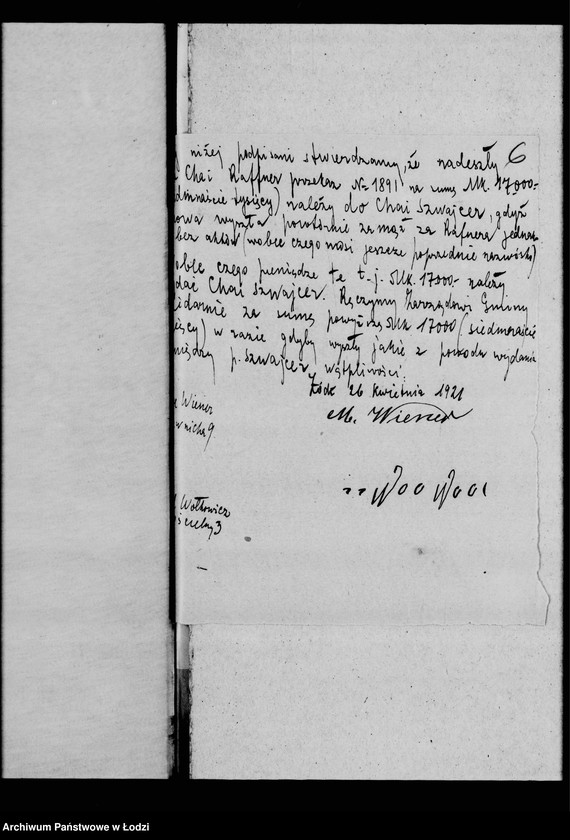 niżej podpisani stwierdzamy, że nadeszły 6
Chai Raffner przekaz № 1891 na sumę Mk. 17.000-
demnaście tysięcy) należy do Chai Szwajcer, gdyż
owa wyszła powtórnie za mąż za Rafnera jednak
bez aktów (wobec czego nosi jeszcze poprzednie nazwisko)
obec czego pieniądze te t.j. Mk. 17000- należy
dać Chai Szwajcer. Ręczymy Zarządowi Gminy
lidarnie za sumę powyższą Mk 17000 (siedmnaście
sięcy) w razie gdyby wyszły jakie z powodu wydania
niędzy p. Szwajcer wątpliwości.
Łódź 26 Kwietnia 1921
M. Wiener
Wiener
9
Wołkowicz
3
Archiwum Państwowe w Łodzi